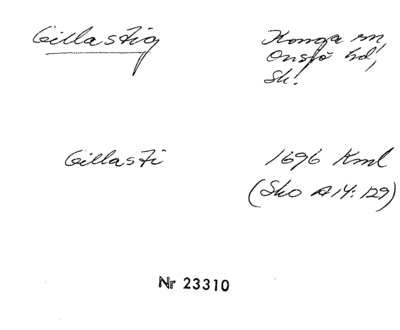 Gillastig
Konga sn,
Onsjö hd,
Sk.
Gillasti
1696 Kml
(Sko A14:129)
Nr 23310